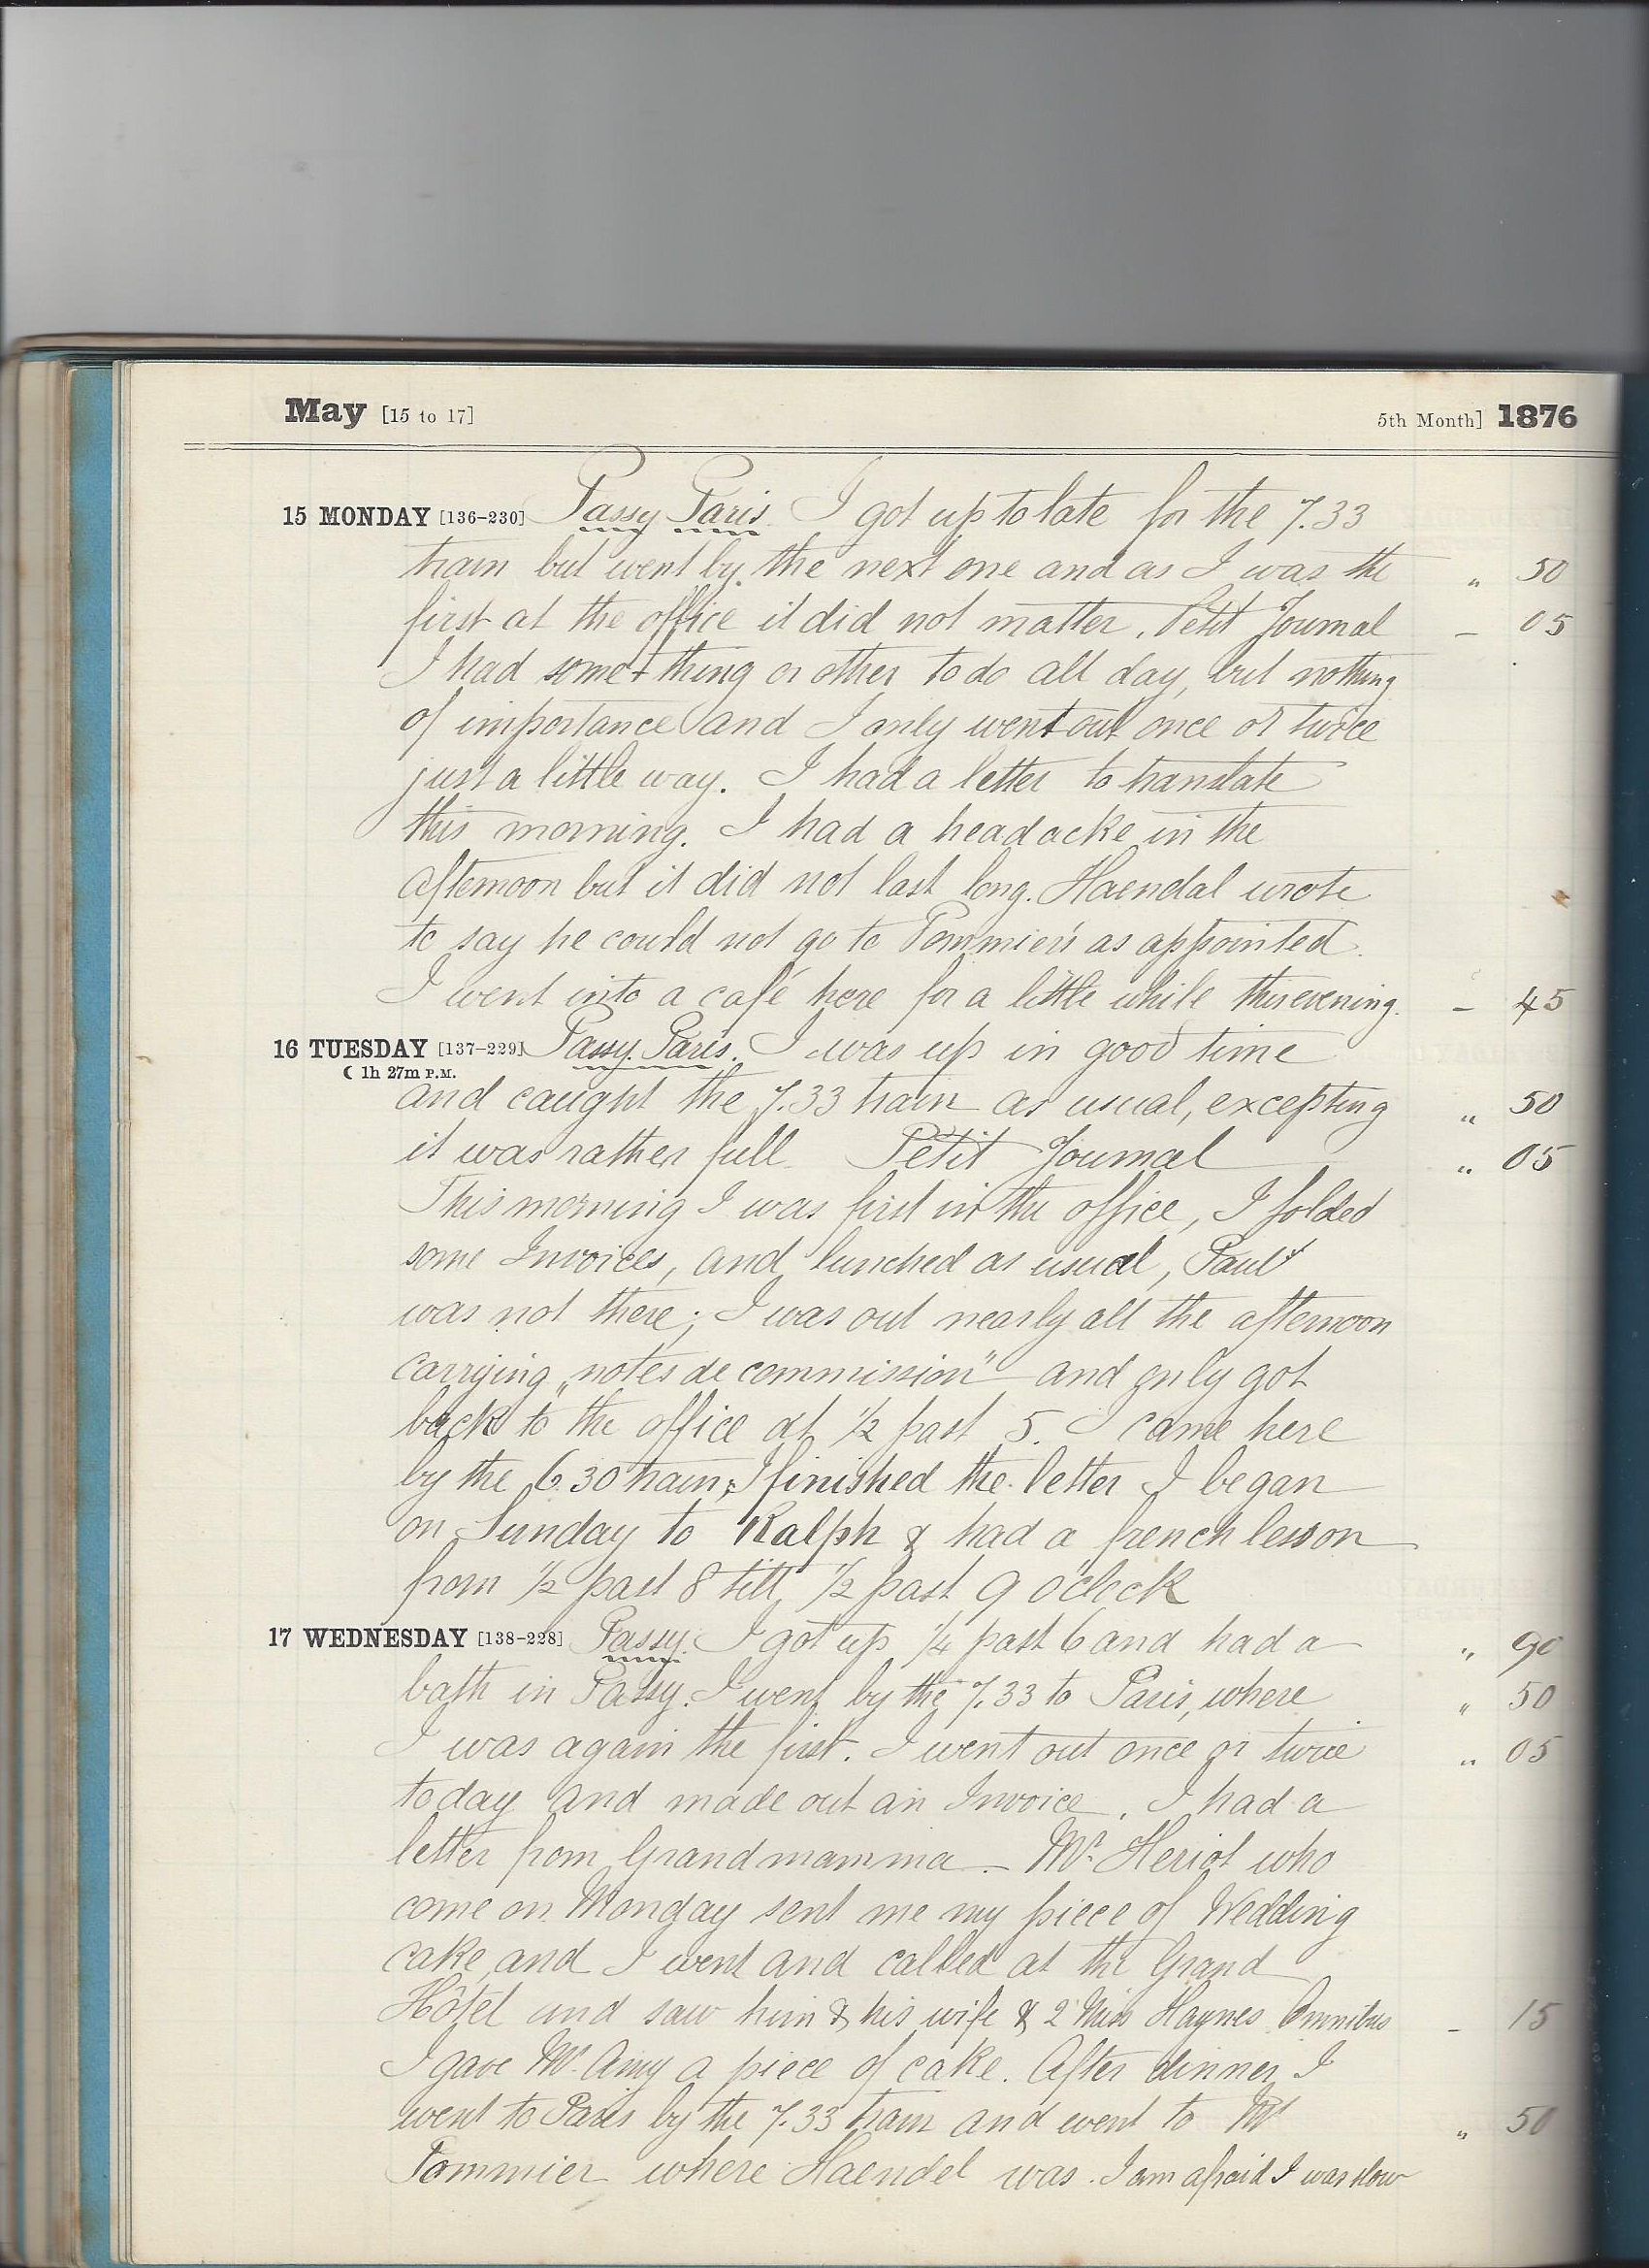 May [15 to 17] 5th Month] 1876
15 MONDAY [136-230] Passy Paris. I got up to late for the 7.33
train but went by the next one and as I was the " 50
first at the office it did not matter. Petit Journal — 05
I had some thing or other to do all day, but nothing
of importance and I only went out once or twice
just a little way. I had a letter to translate
this morning. I had a headacke in the
afternoon but it did not last long. Haendal wrote
to say he could not go to Pommier's as appointed.
I went into a café here for a little while this evening. — 45
16 TUESDAY [137-229] Passy. Paris. I was up in good time
☾ 1h 27m P.M.
and caught the 7.33 train as usual, excepting " 50
it was rather full Petit Journal " 05
This morning I was first in the office, I folded
some Invoices, and lunched as usual, Paul
was not there; I was out nearly all the afternoon
carrying „notes de commission" and only got
back to the office at ½ past 5. I came here
by the 6.30 train; I finished the letter I began
on Sunday to Ralph & had a french lesson
from ½ past 8 till ½ past 9 o'clock
17 WEDNESDAY [138-228] Passy. I got up ¼ past 6 and had a " 90
bath in Passy. I went by the 7.33 to Paris, where " 50
I was again the first. I went out once or twice " 05
to day and made out an Invoice. I had a
letter from Grandmamma — Mr. Heriot who
come on Monday sent me my piece of Wedding
cake, and I went and called at the Grand
Hôtel and saw him & his wife & 2 Miss Haynes Omnibus — 15
I gave Mr. Amy a piece of cake. After dinner I
went to Paris by the 7.33 train and went to Mr " 50
Pommier where Haendel was. I am afraid I was slow